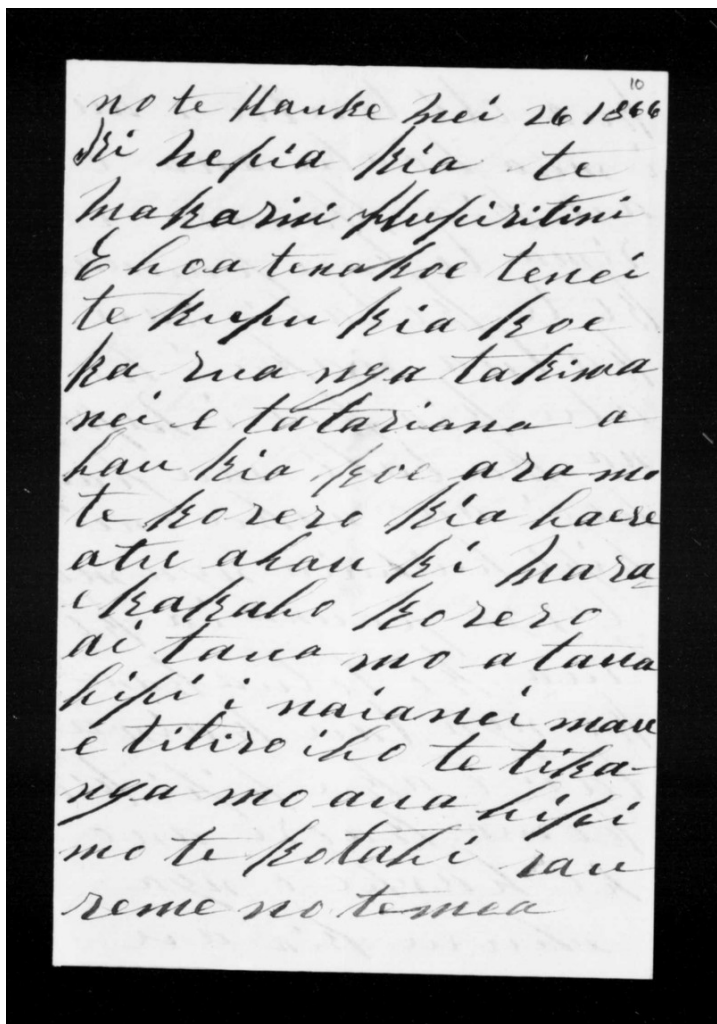 10
no te Hauke Mei 26 1866
Ki Nepia kia te
Makarini Hupiritini
E hoa tenakoe tenei
te kupu kia koe
ka rua nga takiwa
nei e tatariana a
hau kia koe ara mo
te korero kia haere
atu ahau ki Mara
e kakaho korero
ai taua mo a taua
hipi i naianei mau
e titiro iho te tika
nga mo aua hipi
mo te kotahi rau
reme no temea